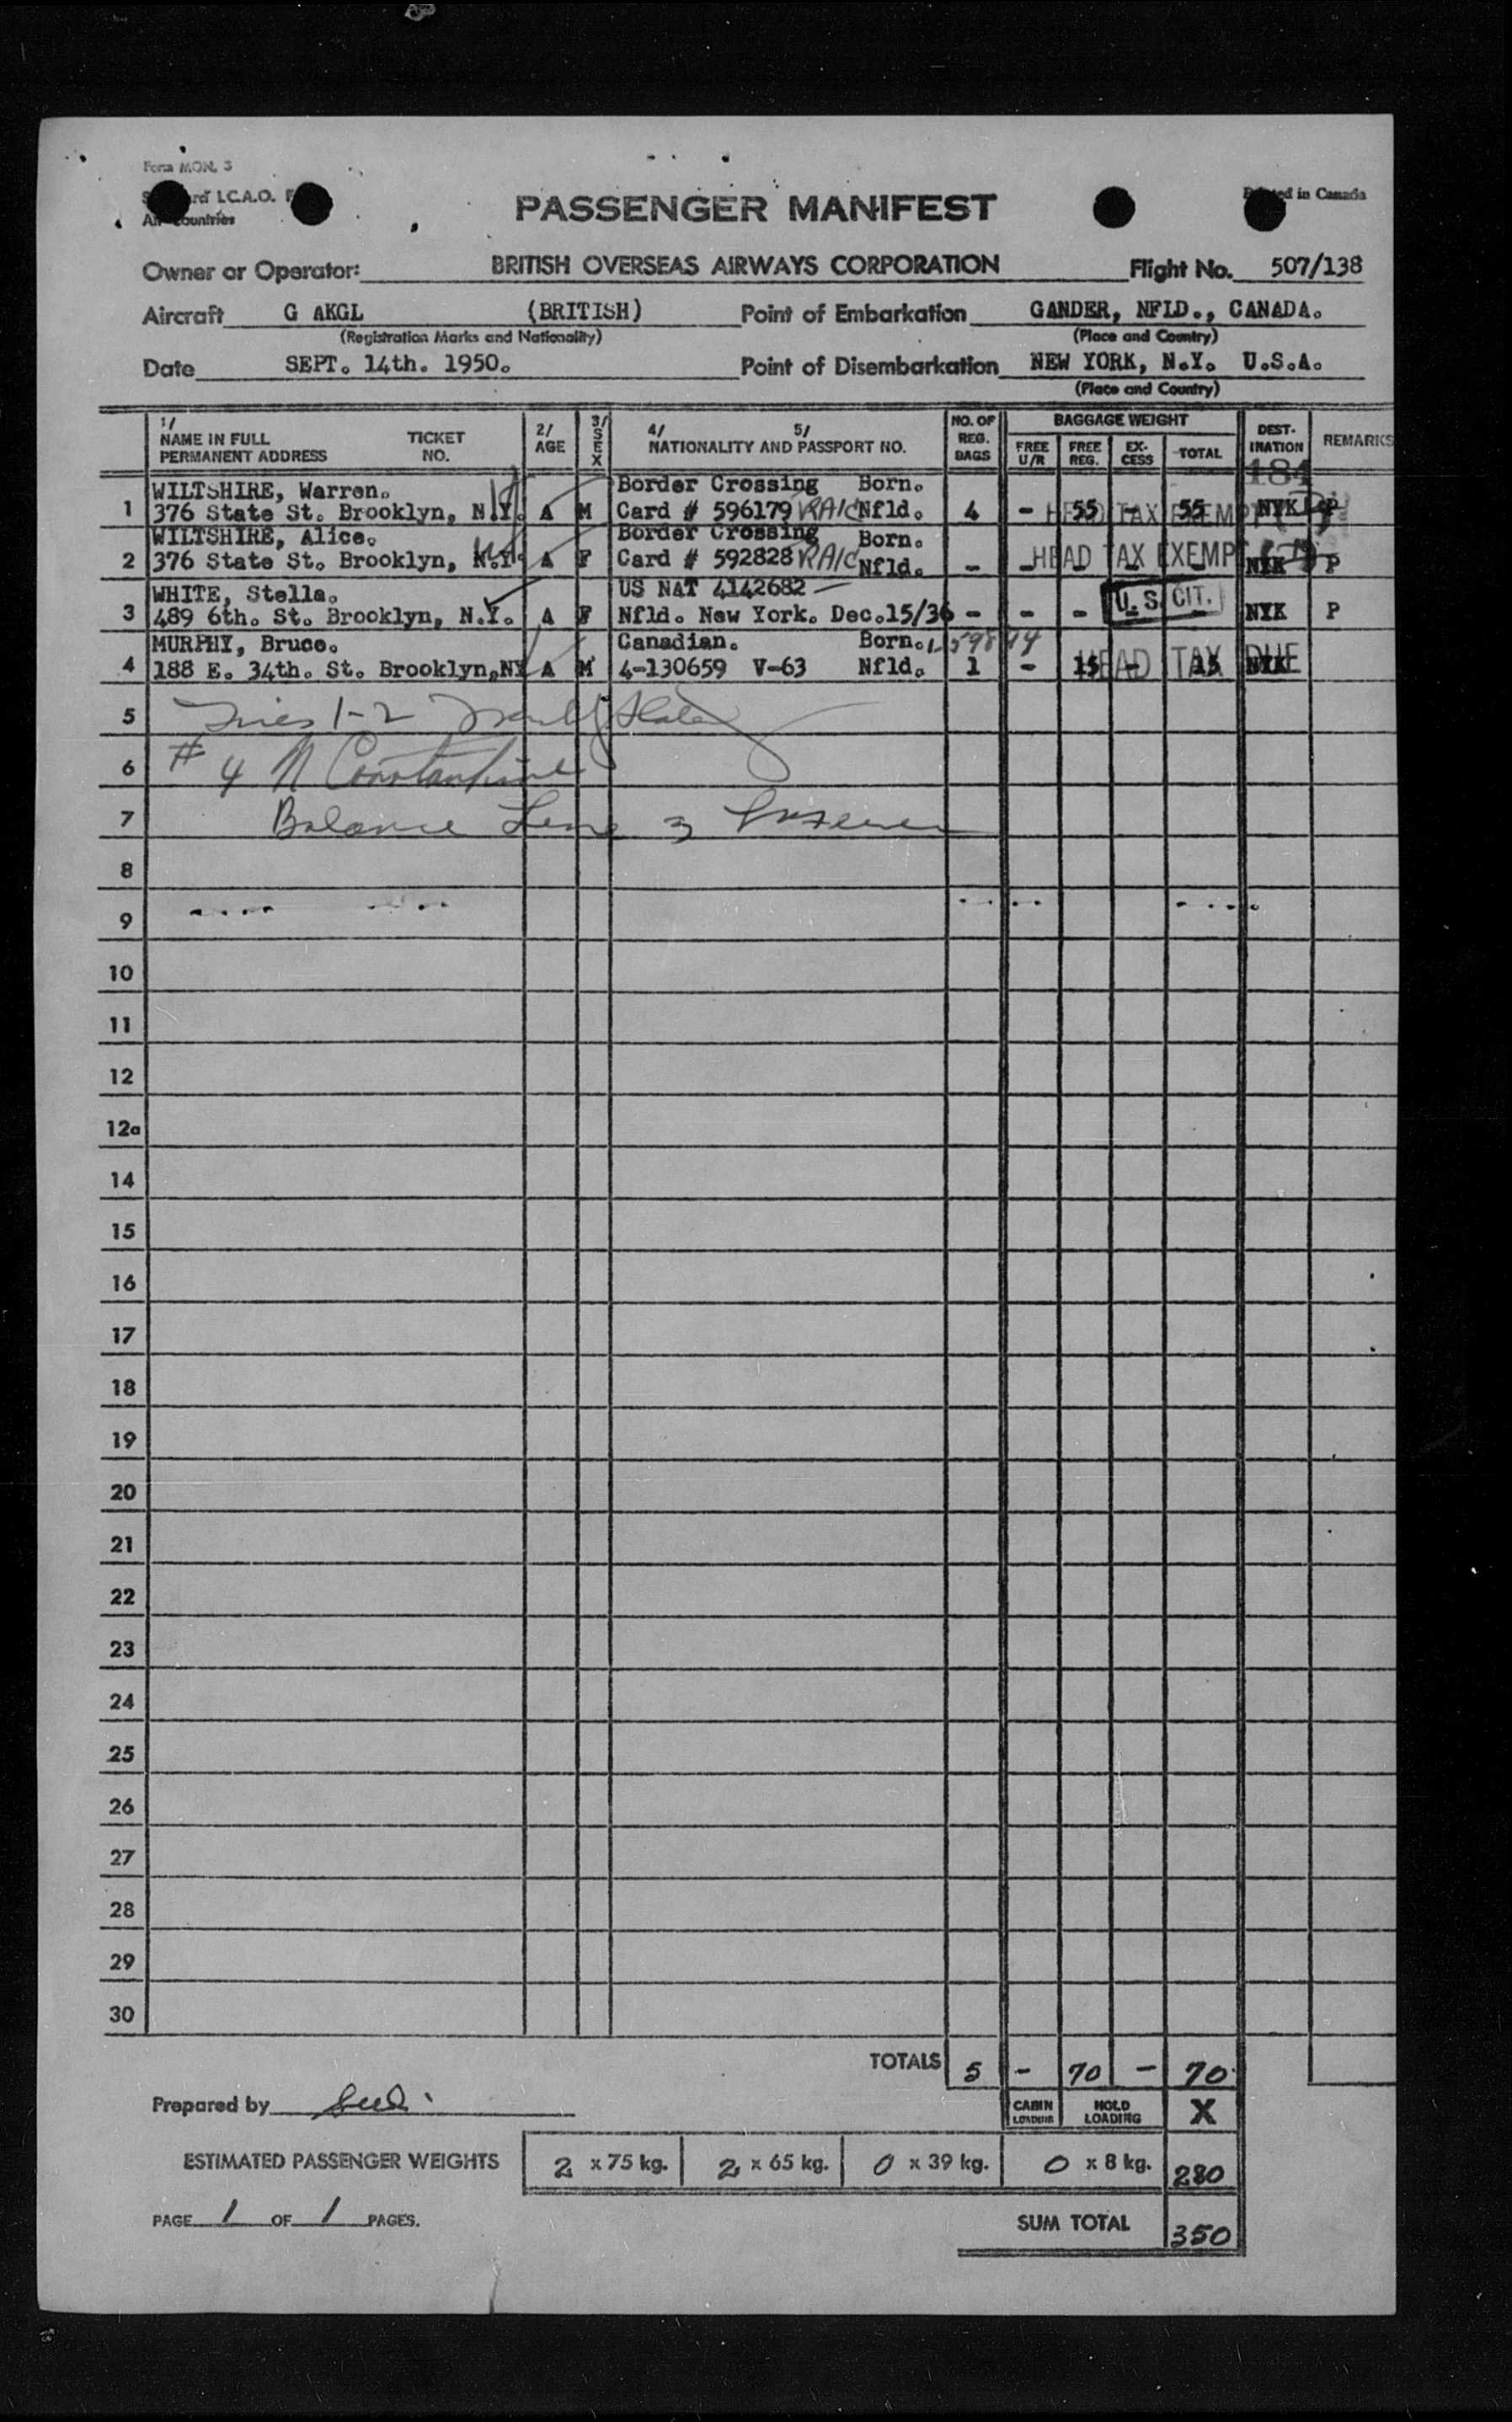 Form MON. 3
I.C.A.O.
Printed in Canada
PASSENGER MANIFEST
Owner or Operator: BRITISH OVERSEAS AIRWAYS CORPORATION Flight No. 507/138
Aircraft G AKGL (BRITISH) Point of Embarkation GANDER, NFLD., CANADA.
(Registration Marks and Nationality) (Place and Country)
Date SEPT. 14th. 1950. Point of Disembarkation NEW YORK, N.Y. U.S.A.
(Place and Country)
1/ NAME IN FULL PERMANENT ADDRESS TICKET NO. 2/ AGE 3/ SEX 4/ 5/ NATIONALITY AND PASSPORT NO. NO. OF REG. BAGS BAGGAGE WEIGHT FREE U/R FREE REG. EX-CESS TOTAL DEST-INATION REMARKS
184
WILTSHIRE, Warren. Border Crossing Born.
1 376 State St. Brooklyn, N.Y. A M Card # 596179 RAIC Nfld. 4 - 55 - 55 NYK P
HEAD TAX EXEMPT
WILTSHIRE, Alice. Border Crossing Born.
2 376 State St. Brooklyn, N.Y. A F Card # 592828 RAIC Nfld. - - - - - NYK P
HEAD TAX EXEMPT
WHITE, Stella. US NAT 4142682
3 489 6th. St. Brooklyn, N.Y. A F Nfld. New York. Dec.15/36 - - - - - NYK P
U.S. CIT.
MURPHY, Bruce. Canadian. Born.
4 188 E. 34th. St. Brooklyn,NY A M 4-130659 V-63 Nfld. 1 - 15 - 15 NYK
HEAD TAX DUE
5 Lines 1-2
6 # 4 N Constantine
7 Balance Line 3
8
9
10
11
12
12a
14
15
16
17
18
19
20
21
22
23
24
25
26
27
28
29
30
TOTALS 5 - 70 - 70
Prepared by
CABIN LOADING HOLD LOADING X
ESTIMATED PASSENGER WEIGHTS 2 x 75 kg. 2 x 65 kg. 0 x 39 kg. 0 x 8 kg. 280
PAGE 1 OF 1 PAGES.
SUM TOTAL 350